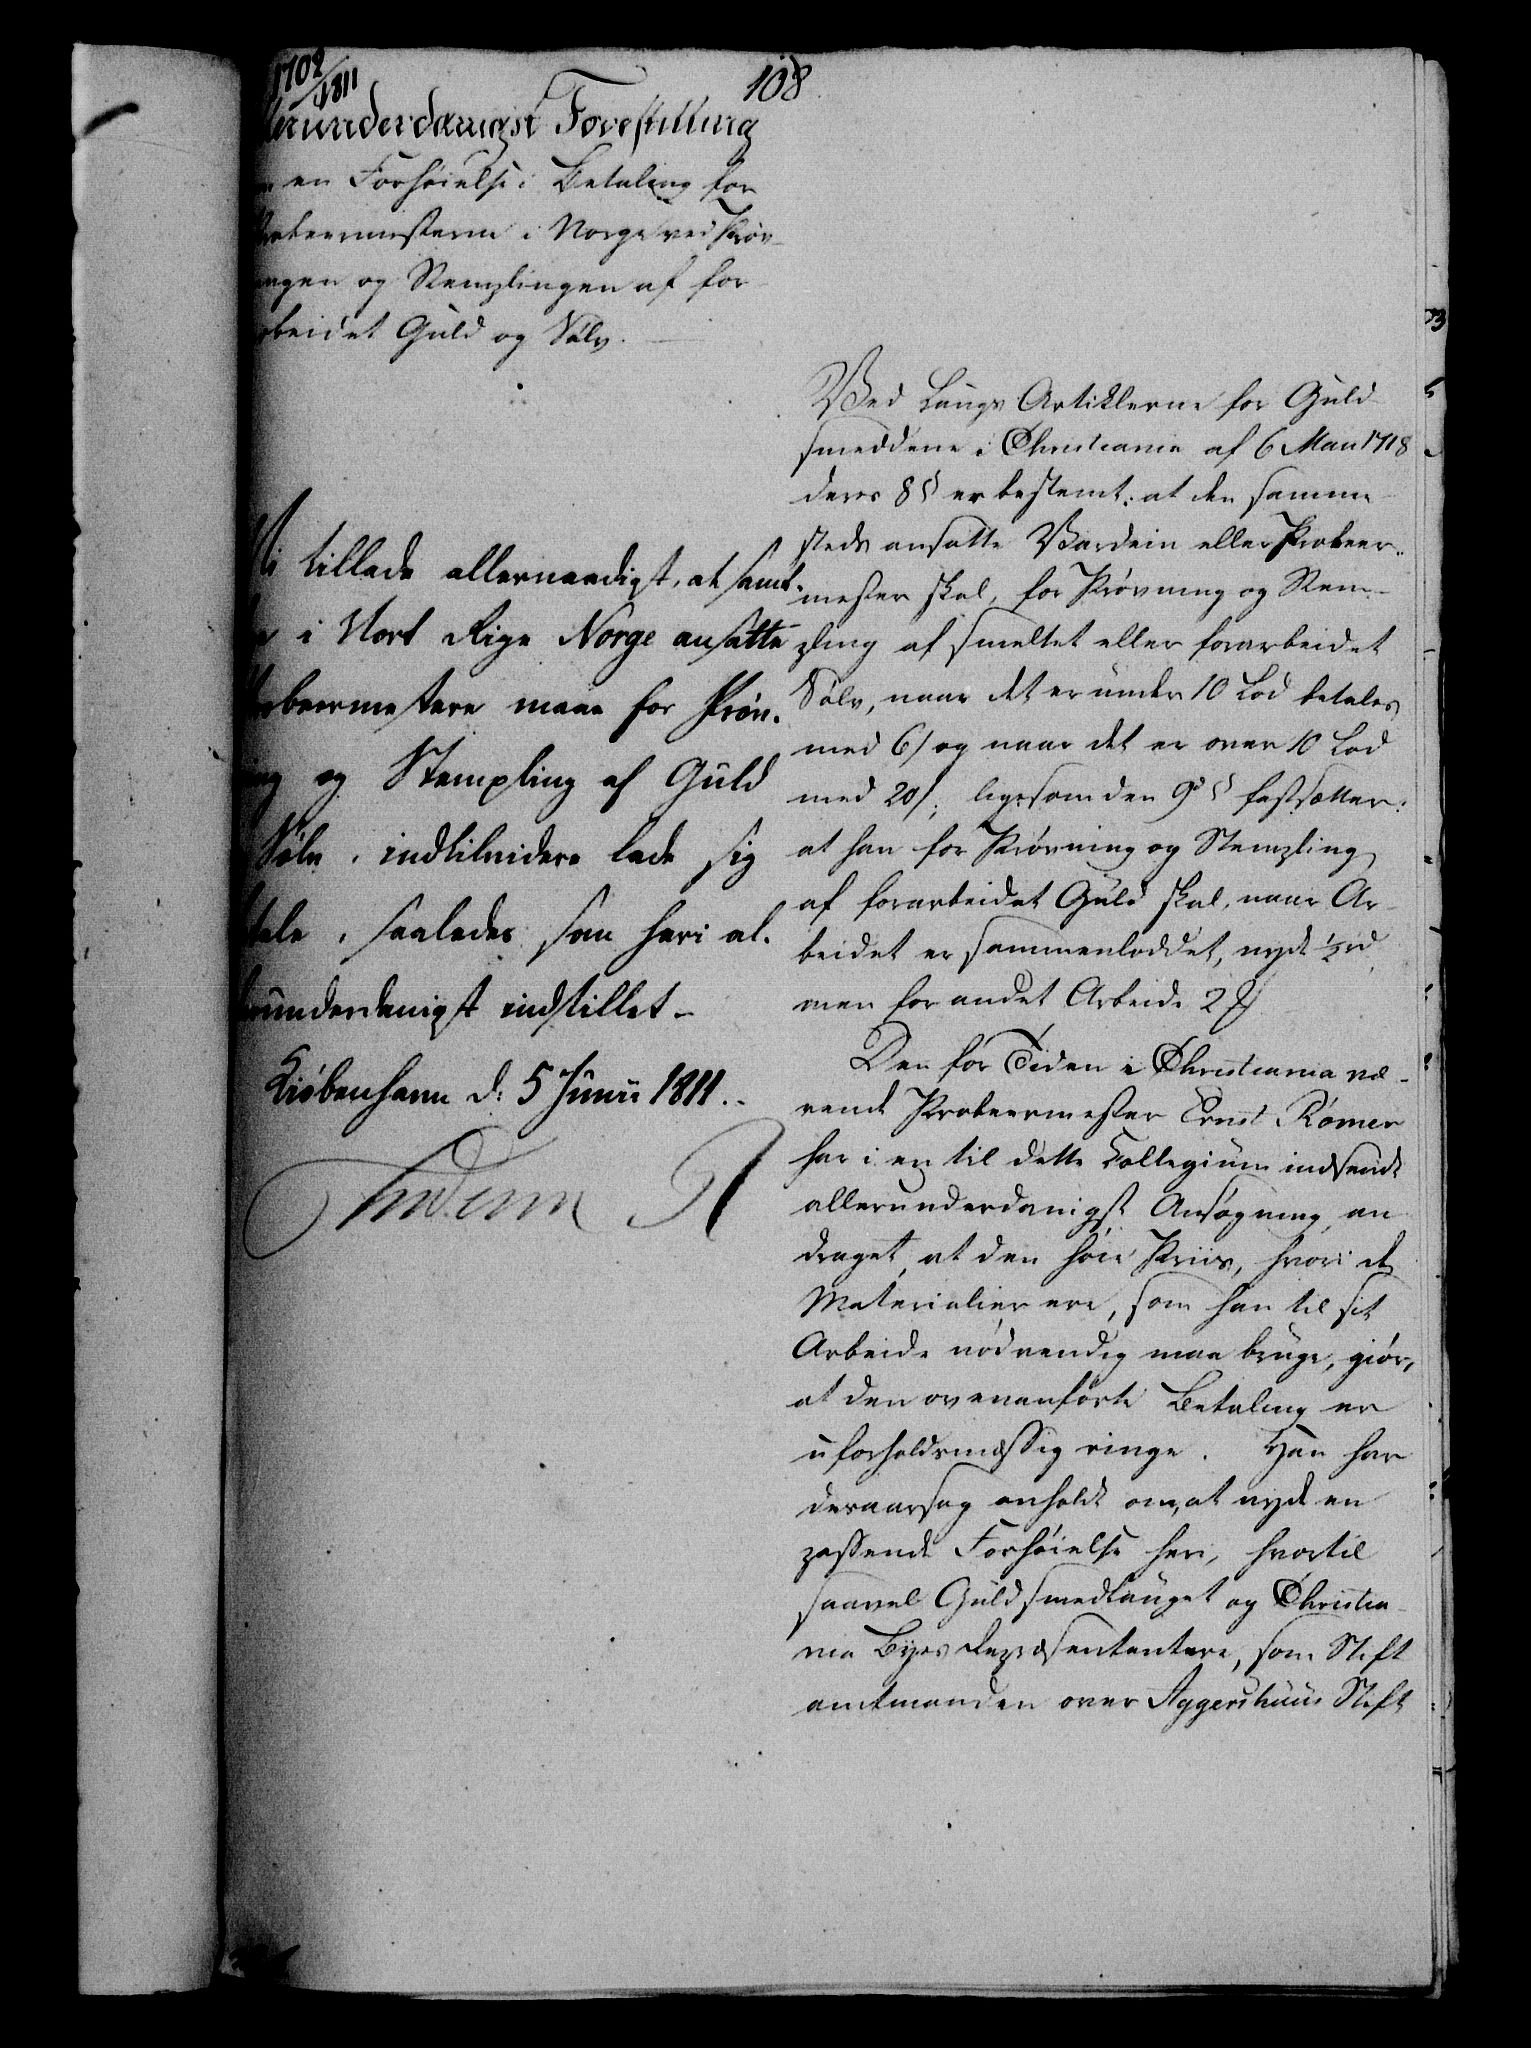 1702/1811
108
erunderdanigst Forestilling
en Forhøielse i Betaling for
robeermesterne i Norge ved Prøv-
ingen og Stemplingen af for-
rbeidet Guld og Sølv.
Vi tillade allernaadigst, at samt-
i Vort Rige Norge ansatte
obeermestere maae for Prøv-
ing og Stempling af Guld
Sølv, indtilvidere lade sig
tale, saaledes som heri al-
runderdanigst indstillet.
Kiøbenhavn d: 5 Junii 1811.
Friderich R
Ved Laugs Artiklerne for Guld-
smeddene i Christiania af 6 Maii 1718
deres 8 § er bestemt: at den samme-
steds ansatte Wardein eller Probeer-
mester skal, for Prøvning og Stem-
pling af smeltet eller forarbeidet
Sølv, naar det er under 10 Lod betales
med 6 s og naar det er over 10 Lod
med 20 s; ligesom den 9de § fastsætter:
at han for Prøvning og Stempling
af forarbeidet Guld skal, naar Ar-
beidet er sammenloddet, nyde ½
men for andet Arbeide 2
Den for Tiden i Christiania væ-
rende Probeermester Ernst Römer
har i en til dette Collegium indsendt
allerunderdanigst Ansøgning, an-
draget, at den høie Priis, hvori de
Materialier ere, som han til sit
Arbeide nødvendig maa bruge, giør,
at den ovenanførte Betaling er
uforholdsmæssig ringe. Han har
desaarsag anholdt om, at nyde en
passende Forhøielse heri, hvortil
saavel Guldsmedlauget og Christia-
nia Byes Repræsentantere, som Stift-
amtmanden over Aggershuus Stift